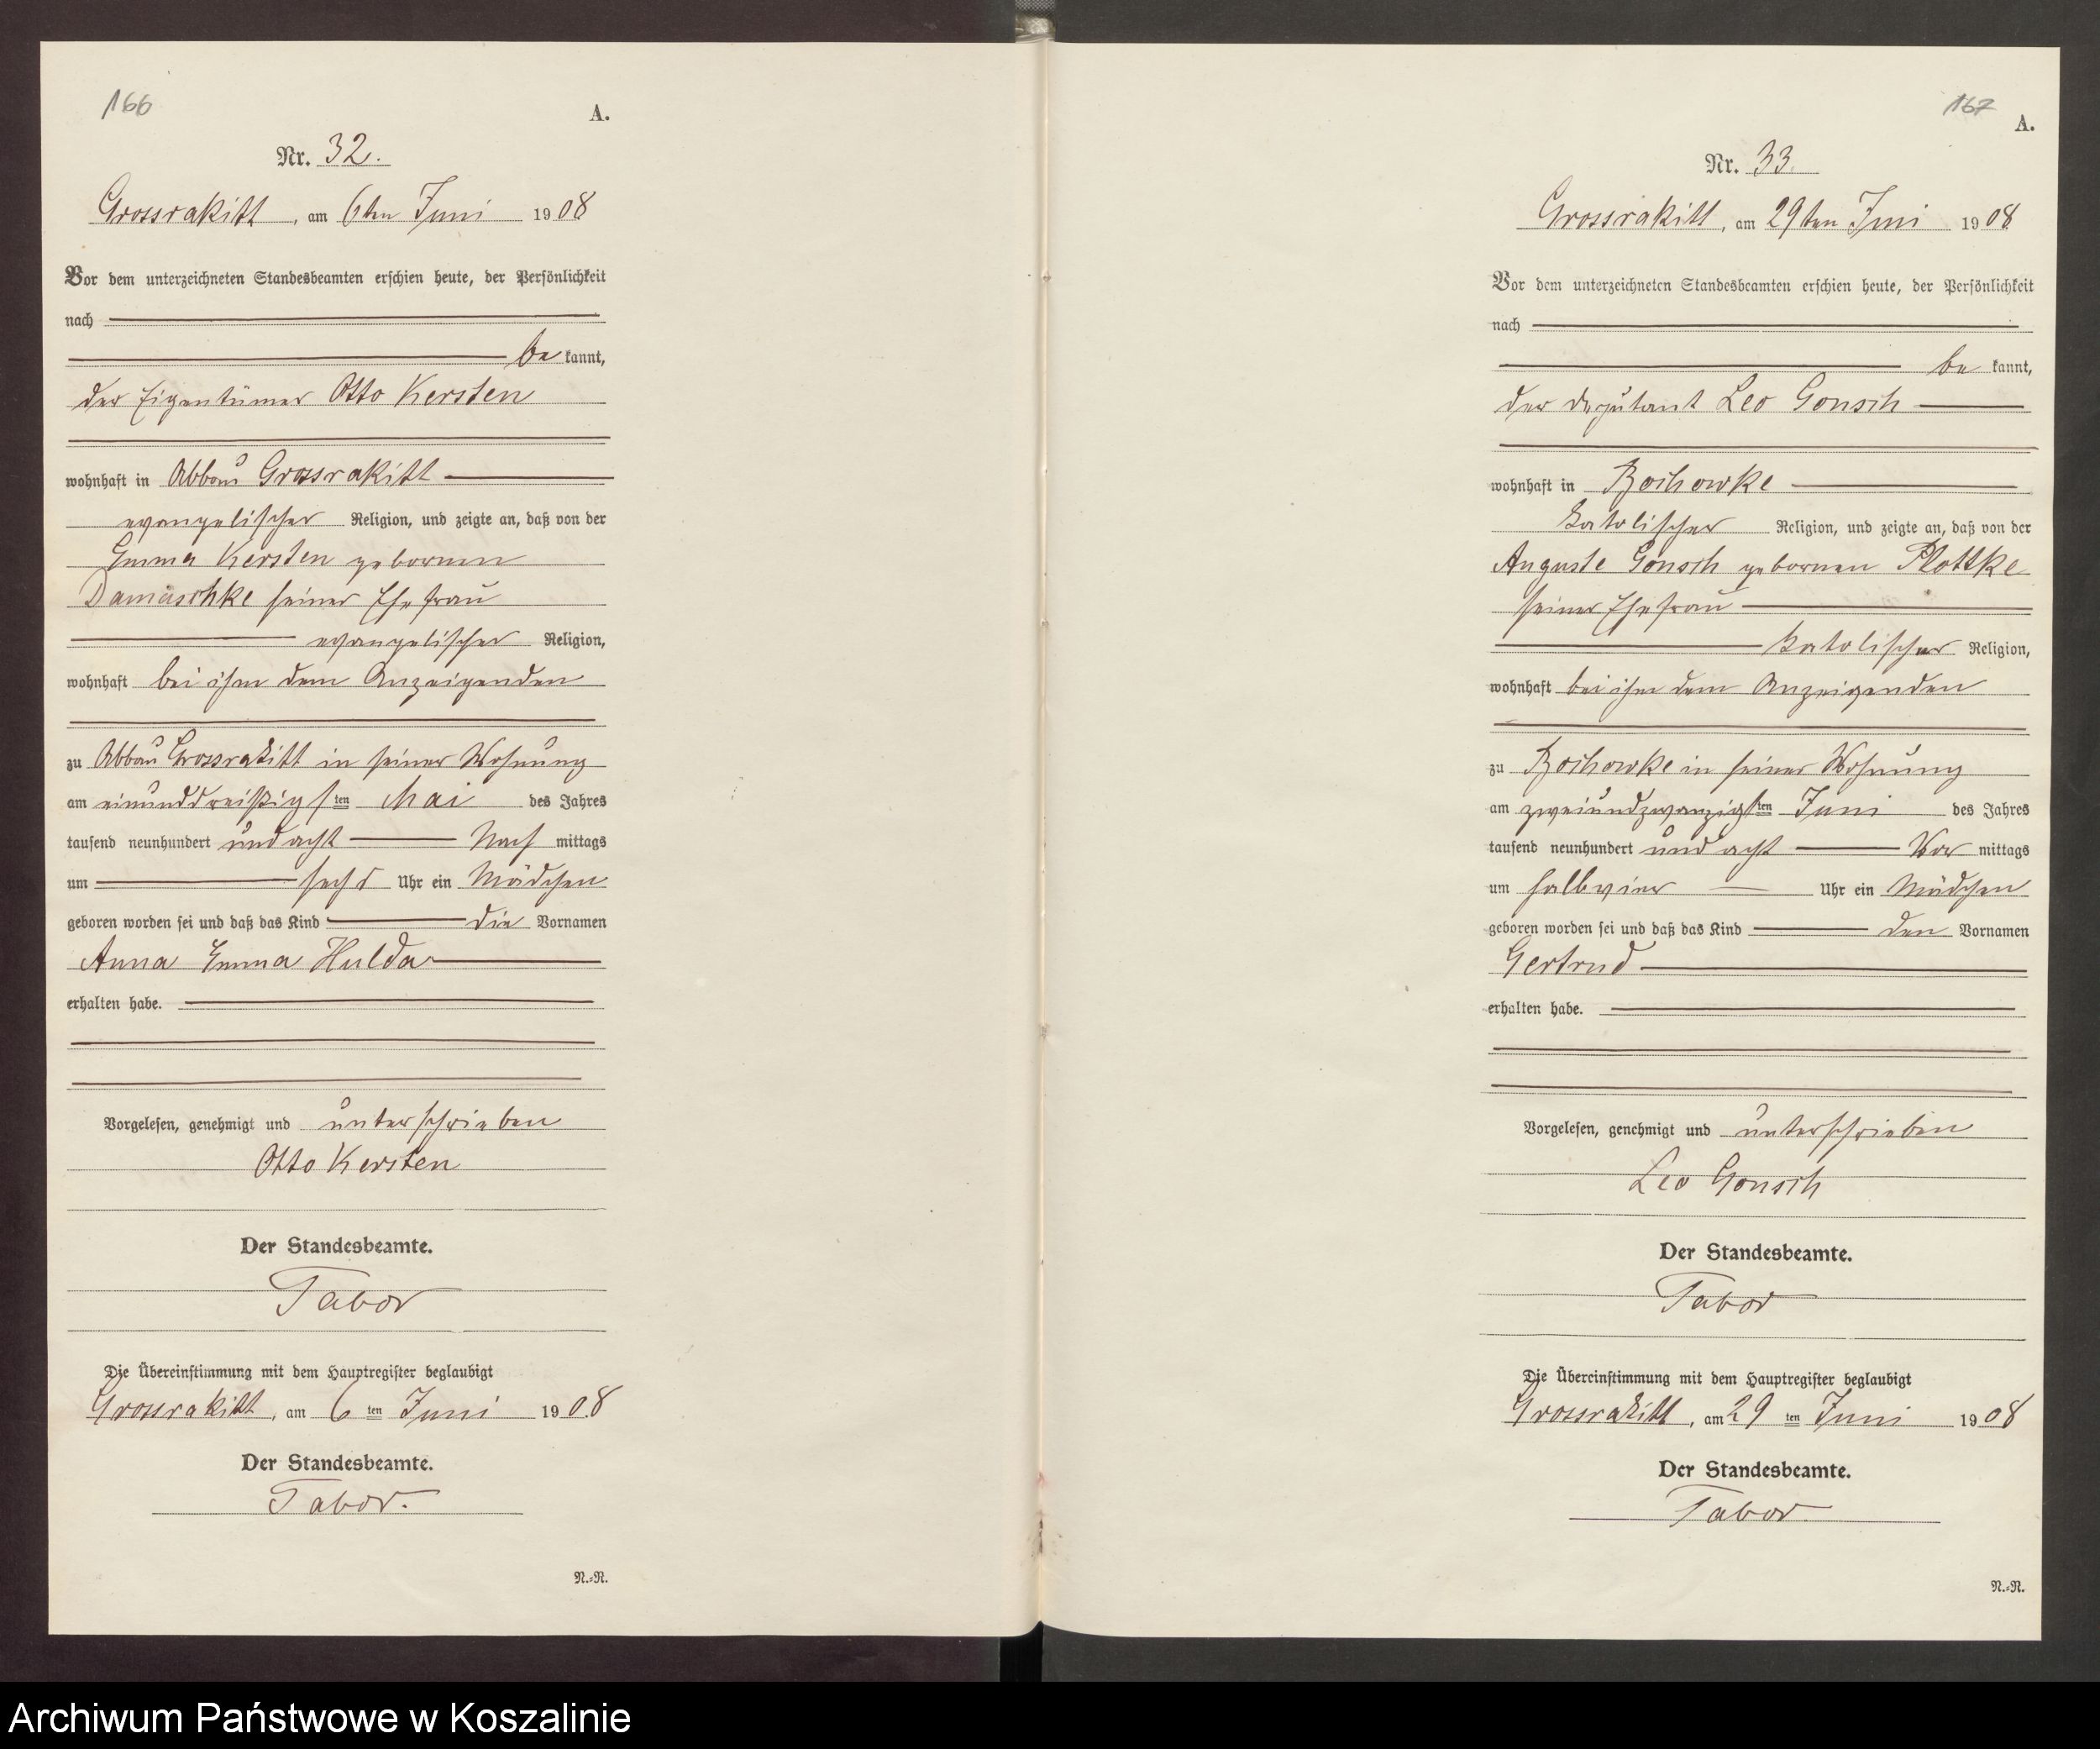 166
A.
Nr. 32.
Grossrakitt, am 6ten Juni 1908
Vor dem unterzeichneten Standesbeamten erschien heute, der Persönlichkeit
nach
be kannt,
der Eigentümer Otto Kersten
wohnhaft in Abbau Grossrakitt
evangelischer Religion, und zeigte an, daß von der
Emma Kersten gebornen
Damaschke seiner Ehefrau
evangelischer Religion,
wohnhaft bei ihm dem Anzeigenden
zu Abbau Grossrakitt in seiner Wohnung
am einunddreißigsten Mai des Jahres
tausend neunhundert und acht Nach mittags
um sechs Uhr ein Mädchen
geboren worden sei und daß das Kind die Vornamen
Anna Emma Hulda
erhalten habe.
Vorgelesen, genehmigt und unterschrieben
Otto Kersten
Der Standesbeamte.
Tabor
Die Übereinstimmung mit dem Hauptregister beglaubigt
Grossrakitt, am 6ten Juni 1908
Der Standesbeamte.
Tabor.
N.=N.
167
A.
Nr. 33.
Grossrakitt, am 29ten Juni 1908
Vor dem unterzeichneten Standesbeamten erschien heute, der Persönlichkeit
nach
be kannt,
der Deputant Leo Gonsch
wohnhaft in Bochowke
katolischer Religion, und zeigte an, daß von der
Auguste Gonsch gebornen Plottke
seiner Ehefrau
katolischer Religion,
wohnhaft bei ihm dem Anzeigenden
zu Bochowke in seiner Wohnung
am zweiundzwanzigsten Juni des Jahres
tausend neunhundert und acht Vor mittags
um halb vier Uhr ein Mädchen
geboren worden sei und daß das Kind den Vornamen
Gertrud
erhalten habe.
Vorgelesen, genehmigt und unterschrieben
Leo Gonsch
Der Standesbeamte.
Tabor
Die Übereinstimmung mit dem Hauptregister beglaubigt
Grossrakitt, am 29ten Juni 1908
Der Standesbeamte.
Tabor.
N.=N.
Archiwum Państwowe w Koszalinie